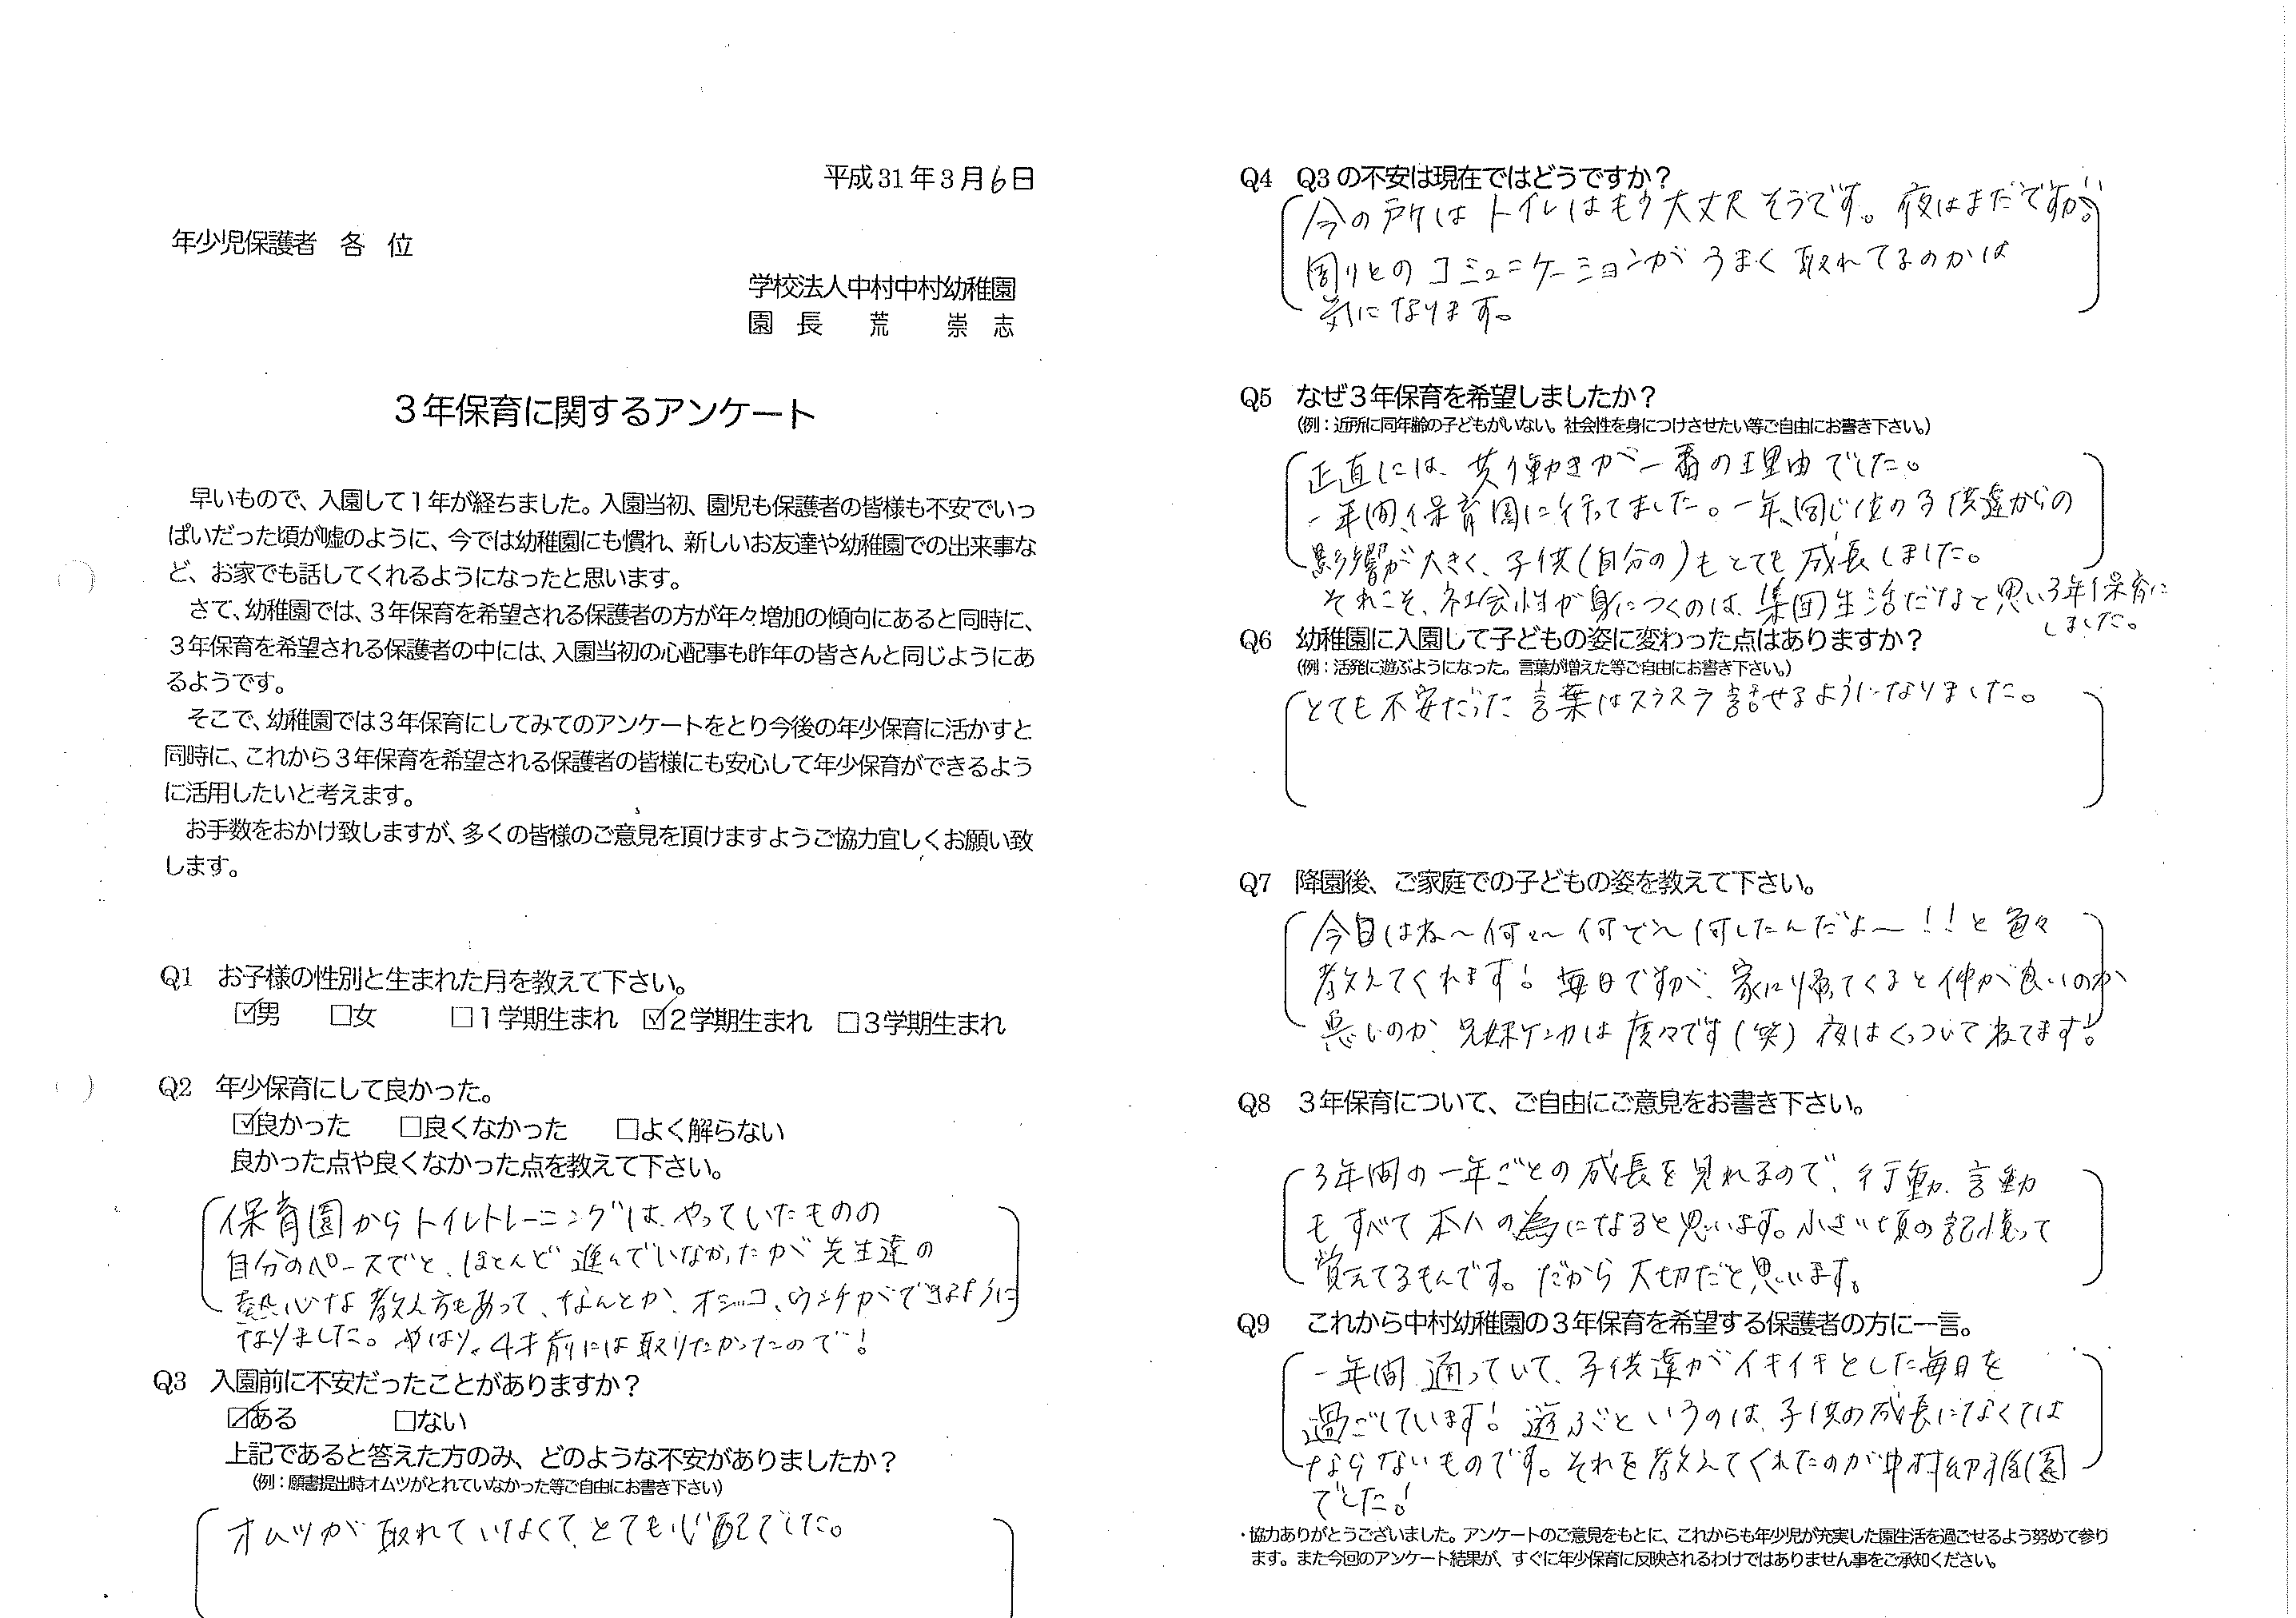 平成31年3月6日
年少児保護者 各 位
学校法人中村中村幼稚園
園 長 荒 崇 志
3年保育に関するアンケート
早いもので、入園して1年が経ちました。入園当初、園児も保護者の皆様も不安でいっ
ぱいだった頃が嘘のように、今では幼稚園にも慣れ、新しいお友達や幼稚園での出来事な
ど、お家でも話してくれるようになったと思います。
さて、幼稚園では、3年保育を希望される保護者の方が年々増加の傾向にあると同時に、
3年保育を希望される保護者の中には、入園当初の心配事も昨年の皆さんと同じようにあ
るようです。
そこで、幼稚園では3年保育にしてみてのアンケートをとり今後の年少保育に活かすと
同時に、これから3年保育を希望される保護者の皆様にも安心して年少保育ができるよう
に活用したいと考えます。
お手数をおかけ致しますが、多くの皆様のご意見を頂けますようご協力宜しくお願い致
します。
Q1 お子様の性別と生まれた月を教えて下さい。
☑男 □女 □1学期生まれ ☑2学期生まれ □3学期生まれ
Q2 年少保育にして良かった。
☑良かった □良くなかった □よく解らない
良かった点や良くなかった点を教えて下さい。
保育園からトイレトレーニングは、やっていたものの
自分のペースでと、ほとんど進んでいなかったが先生達の
熱心な教え方もあって、なんとか、オシッコ、ウンチができるように
なりました。やはり、4才前には取りたかったので!
Q3 入園前に不安だったことがありますか?
☑ある □ない
上記であると答えた方のみ、どのような不安がありましたか?
(例:願書提出時オムツがとれていなかった等ご自由にお書き下さい)
オムツが取れていなくて、とても心配でした。
Q4 Q3の不安は現在ではどうですか?
今の所はトイレはもう大丈夫そうです。夜はまだですが。
周りとのコミュニケーションがうまく取れてるのかは
気になります。
Q5 なぜ3年保育を希望しましたか?
(例:近所に同年齢の子どもがいない。社会性を身につけさせたい等ご自由にお書き下さい。)
正直には、共働きが一番の理由でした。
一年間、保育園に行ってました。一年、同じ位の子供達からの
影響が大きく、子供(自分の)もとても成長しました。
それこそ、社会性が身につくのは、集団生活だなと思い3年保育に
しました。
Q6 幼稚園に入園して子どもの姿に変わった点はありますか?
(例:活発に遊ぶようになった。言葉が増えた等ご自由にお書き下さい。)
とても不安だった言葉はスラスラ話せるようになりました。
Q7 降園後、ご家庭での子どもの姿を教えて下さい。
今日はね〜何々〜何で〜何したんだよ〜!!と色々
教えてくれます!毎日ですが、家に帰ってくると仲が良いのか
悪いのか、兄妹ゲンカは度々です(笑)夜はくっついてねてます!
Q8 3年保育について、ご自由にご意見をお書き下さい。
3年間の一年ごとの成長を見れるので、行動、言動
もすべて本人の為になると思います。小さい頃の記憶って
覚えてるもんです。だから大切だと思います。
Q9 これから中村幼稚園の3年保育を希望する保護者の方に一言。
一年間、通っていて、子供達がイキイキとした毎日を
過ごしています!遊ぶというのは、子供の成長になくては
ならないものです。それを教えてくれたのが中村幼稚園
でした!
・協力ありがとうございました。アンケートのご意見をもとに、これからも年少児が充実した園生活を過ごせるよう努めて参り
ます。また今回のアンケート結果が、すぐに年少保育に反映されるわけではありません事をご承知ください。